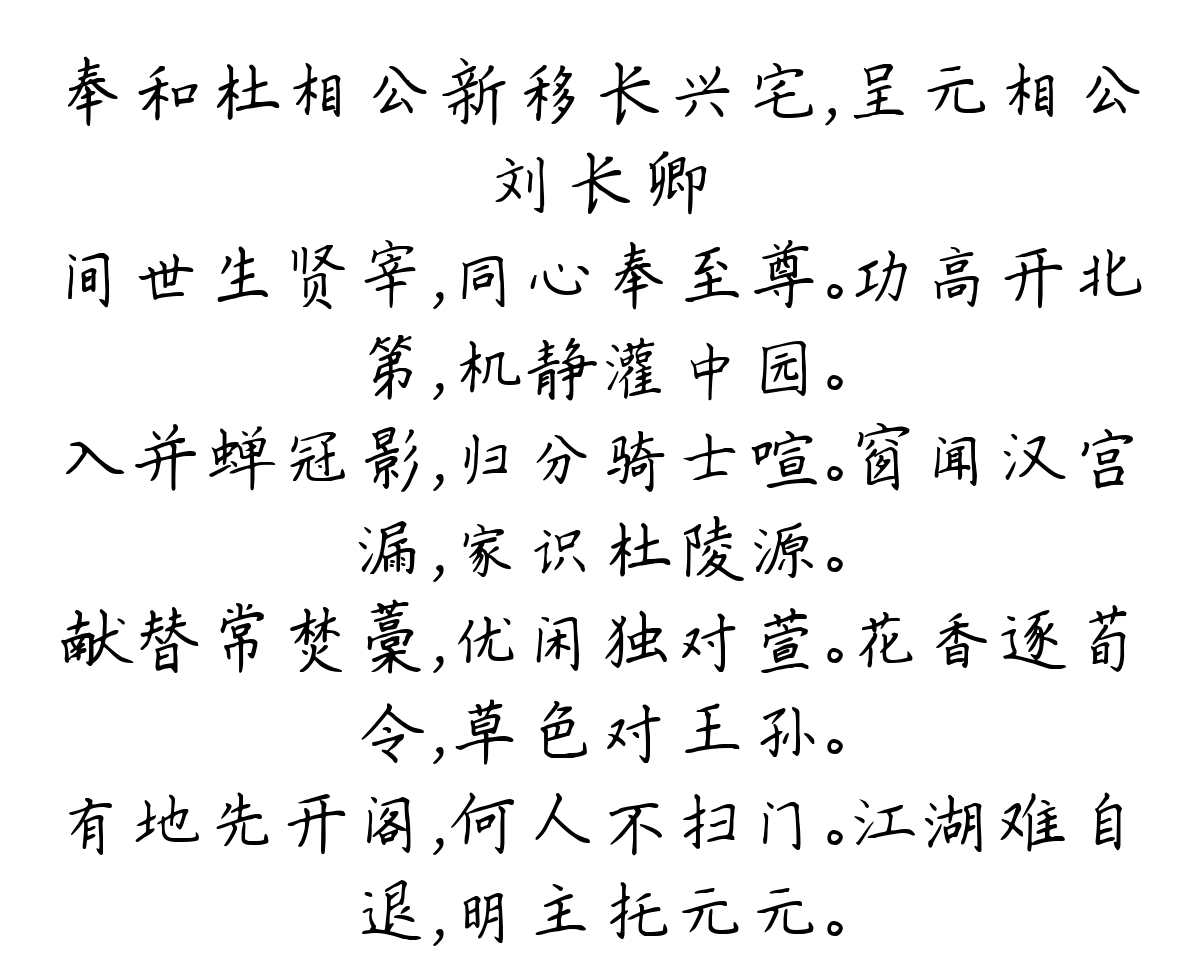 奉和杜相公新移长兴宅,呈元相公
刘长卿
间世生贤宰,同心奉至尊。功高开北
第,机静灌中园。
入并蝉冠影,归分骑士喧。窗闻汉宫
漏,家识杜陵源。
献替常焚藁,优闲独对萱。花香逐荀
令,草色对王孙。
有地先开阁,何人不扫门。江湖难自
退,明主托元元。